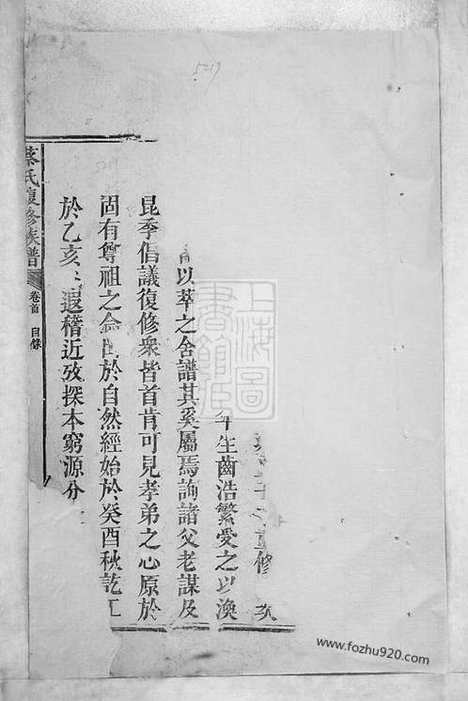 5219
修
年生齒浩繁愛之以渙
以萃之舍譜其奚屬焉詢諸父老謀及
昆季倡議復修衆皆首肯可見孝弟之心原於
固有尊祖之念由於自然經始於癸酉秋訖工
於乙亥 遐稽近攷探本窮源分
蔡氏復修族譜 卷首 目錄
上海圖書館藏
www.fozhu920.com